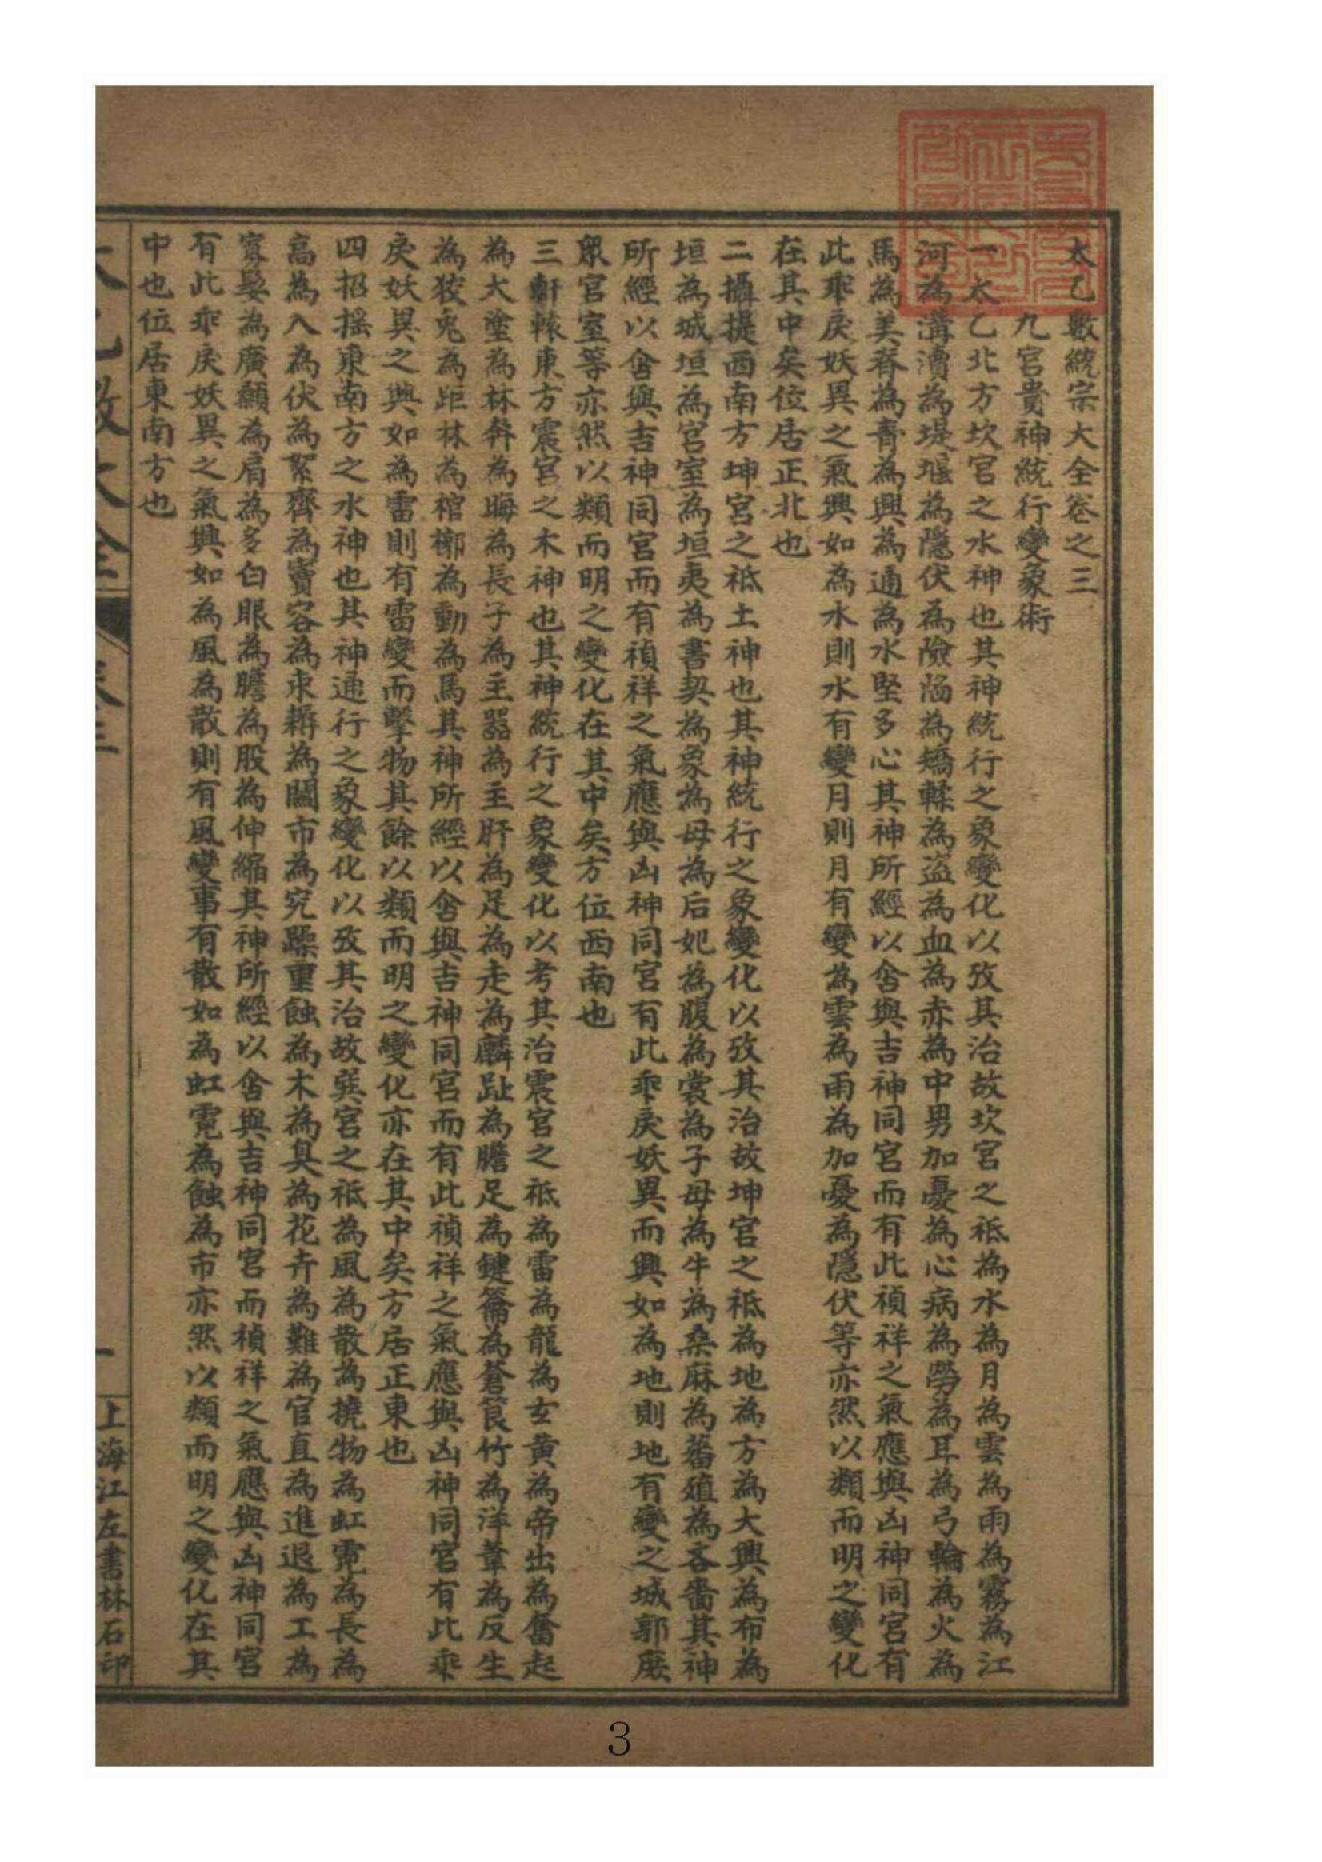 太乙數統宗大全卷之三
九宮貴神統行變象術
一太乙北方坎宮之水神也其神統行之象變化以攷其治故坎宮之祇為水為月為雲為雨為霧為江
河為溝瀆為堤堰為隱伏為險陷為矯輮為盜為血為赤為中男加憂為心病為勞為耳為弓輪為火為
馬為美脊為膏為興為通為水堅多心其神所經以舍與吉神同宮而有此禎祥之氣應與凶神同宮有
此乖戾妖異之氣興如為水則水有變月則月有變為雲為雨為加憂為隱伏等亦然以類而明之變化
在其中矣位居正北也
二攝提西南方坤宮之祇土神也其神統行之象變化以攷其治故坤宮之祇為地為方為大興為布為
垣為城垣為宮室為垣夷為書契為象為母為后妃為腹為裳為子母為牛為桑麻為蕃殖為吝嗇其神
所經以舍與吉神同宮而有禎祥之氣應與凶神同宮有此乖戾妖異而興如為地則地有變之城郭廢
眾宮室等亦然以類而明之變化在其中矣方位西南也
三軒轅東方震宮之木神也其神統行之象變化以考其治震宮之祇為雷為龍為玄黃為帝出為奮起
為大塗為林為晦為長子為主器為主肝為足為走為麟趾為膽足為鍵籥為蒼筤竹為萑葦為反生
為狡兎為距林為棺槨為動為馬其神所經以舍與吉神同宮而有此禎祥之氣應與凶神同宮有此乖
戾妖異之興如為雷則有雷變而擊物其餘以類而明之變化亦在其中矣方居正東也
四招搖東南方之水神也其神通行之象變化以攷其治故巽宮之祇為風為散為撓物為虹霓為長為
高為入為伏為絜齊為賓客為耒耨為關市為究躁重蝕為木為臭為花卉為難為官直為進退為工為
寡髮為廣顙為肩為多白眼為膽為股為伸縮其神所經以舍與吉神同宮而禎祥之氣應與凶神同宮
有此乖戾妖異之氣興如為風為散則有風變事有散如為虹霓為蝕為市亦然以類而明之變化在其
中也位居東南方也
太乙數大全 卷三 一 上海江左書林石印
3